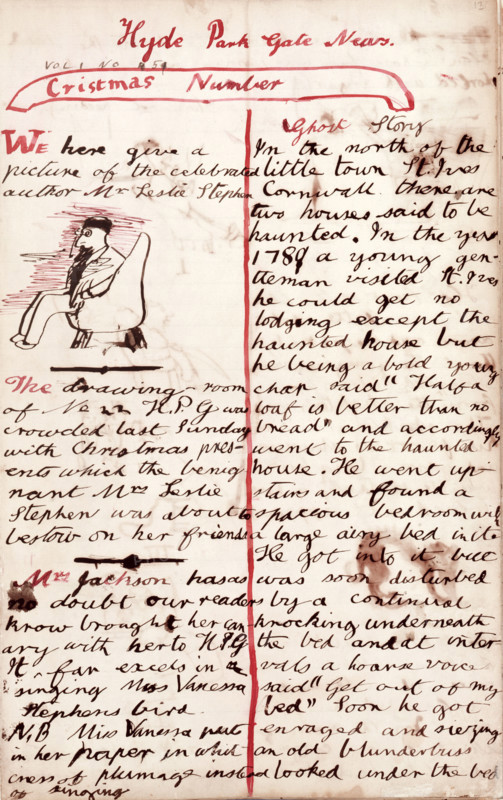 Hyde Park Gate News.
VOL. 1 No 51
Cristmas Number
We here give a
picture of the celebrated
author Mr Leslie Stephen
The drawing-room
of No 22 H.P.G was
crowded last Sunday
with Christmas pres-
ents which the benig
nant Mrs Leslie
Stephen was about to
bestow on her friends
Mrs Jackson has as
no doubt our readers
know brought her can
ary with her to H.P.G
It far excels in
singing Miss Vanessa
Stephens bird.
N.B Miss Vanessa put
in her paper in whit
cress of plumage instead
of singing
Ghost Story
In the north of the
little town St. Ives
Cornwall there are
two houses said to be
haunted. In the year
1789 a young gen-
tleman visited St. Ives
he could get no
lodging except the
haunted house but
he being a bold young
chap said "Half a
loaf is better than no
bread" and accordingly
went to the haunted
house. He went up-
stairs and found a
spacious bedroom with
a large airy bed in it.
He got into it but
was soon disturbed
by a continual
knocking underneath
the bed and at inter
vals a hoarse voice
said "Get out of my
bed" Soon he got
enraged and siezing
an old blunderbuss
looked under the bed